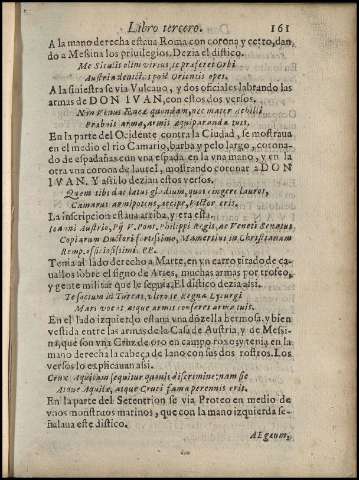 Libro tercero. 161
A la mano derecha estaua Roma con corona y cetro, dan-
do a Messina los priuilegios. Dezia el distico.
Me Siculis olim versus, se præferet Orbi
Austria deuictis post Orientis opes.
A la siniestra se via Vulcano, y dos oficiales labrando las
armas de DON IVAN, con estos dos versos.
Non Venus Eneæ quondam, nec mater Achilli
Præbuit arma, armis æquiparanda tuis.
En la parte del Ocidente contra la Ciudad, se mostraua
en el medio el rio Camario, barba y pelo largo, corona-
do de espadañas con vna espada en la vna mano, y en la
otra vna corona de laurel, mostrando coronar a DON
IVAN. Y assi lo dezian estos versos.
Quem tibi dat latus gladium, quos cingere lauros,
Camarus armipotens, accipe, Victor eris.
La inscripcion estaua arriba, y era esta.
Ioanni Austrio, Pij V. Pont. Philippi Regis, ac Veneti Senatus
Copiarum Ductori fortissimo, Mamertius in Christianam
Remp. officiosissimi. PP.
Tenia al lado derecho a Marte, en vn carro tirado de ca-
uallos sobre el signo de Aries, muchas armas por trofeo,
y gente militar que le seguia. El distico dezia assi.
Te socium in Turcas, vltro se Regna Lycurgi
Mars vouet atque armis conferet arma tuis.
En el lado izquierdo estaua vna donzella hermosa, y bien
vestida entre las armas de la Casa de Austria, y de Messi-
na, que son vna Cruz de oro en campo roxo, y tenia en la
mano derecha la cabeça de Iano con sus dos rostros. Los
versos lo explicauan assi.
Crux Aquilam sequitur quouis discrimine: nam se
Atque Aquilæ, atque Cruci fama peremnis erit.
En la parte del Setentrion se via Proteo en medio de
vnos monstruos marinos, que con la mano izquierda se-
ñalaua este distico.
AEgeum,